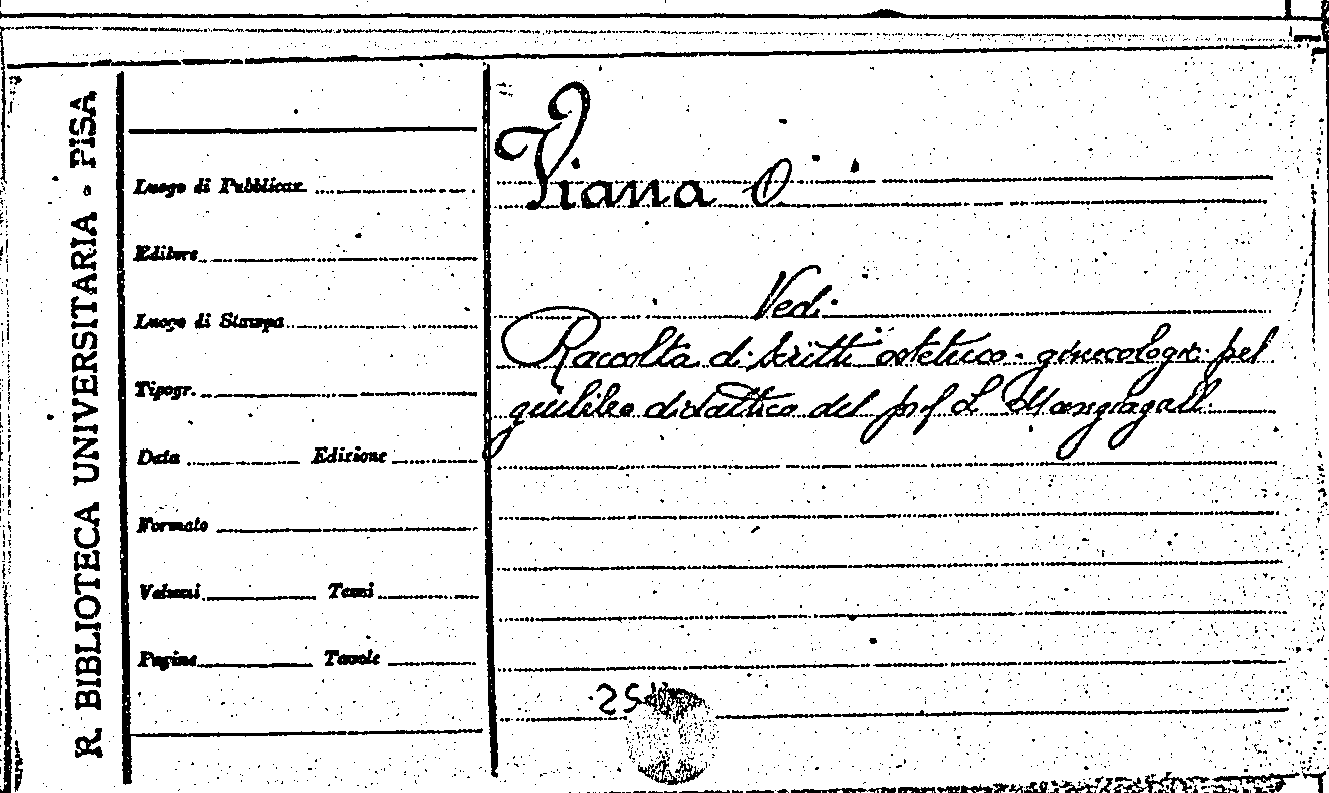 R. BIBLIOTECA UNIVERSITARIA - PISA
Luogo di Pubblicaz.
Editore
Luogo di Stampa
Tipogr.
Data Edizione
Formato
Volumi Tomi
Pagine Tavole
Viana O
Vedi:
Raccolta di scritti ostetrico-ginecologici pel
giubileo didattico del prof L Mangiagalli